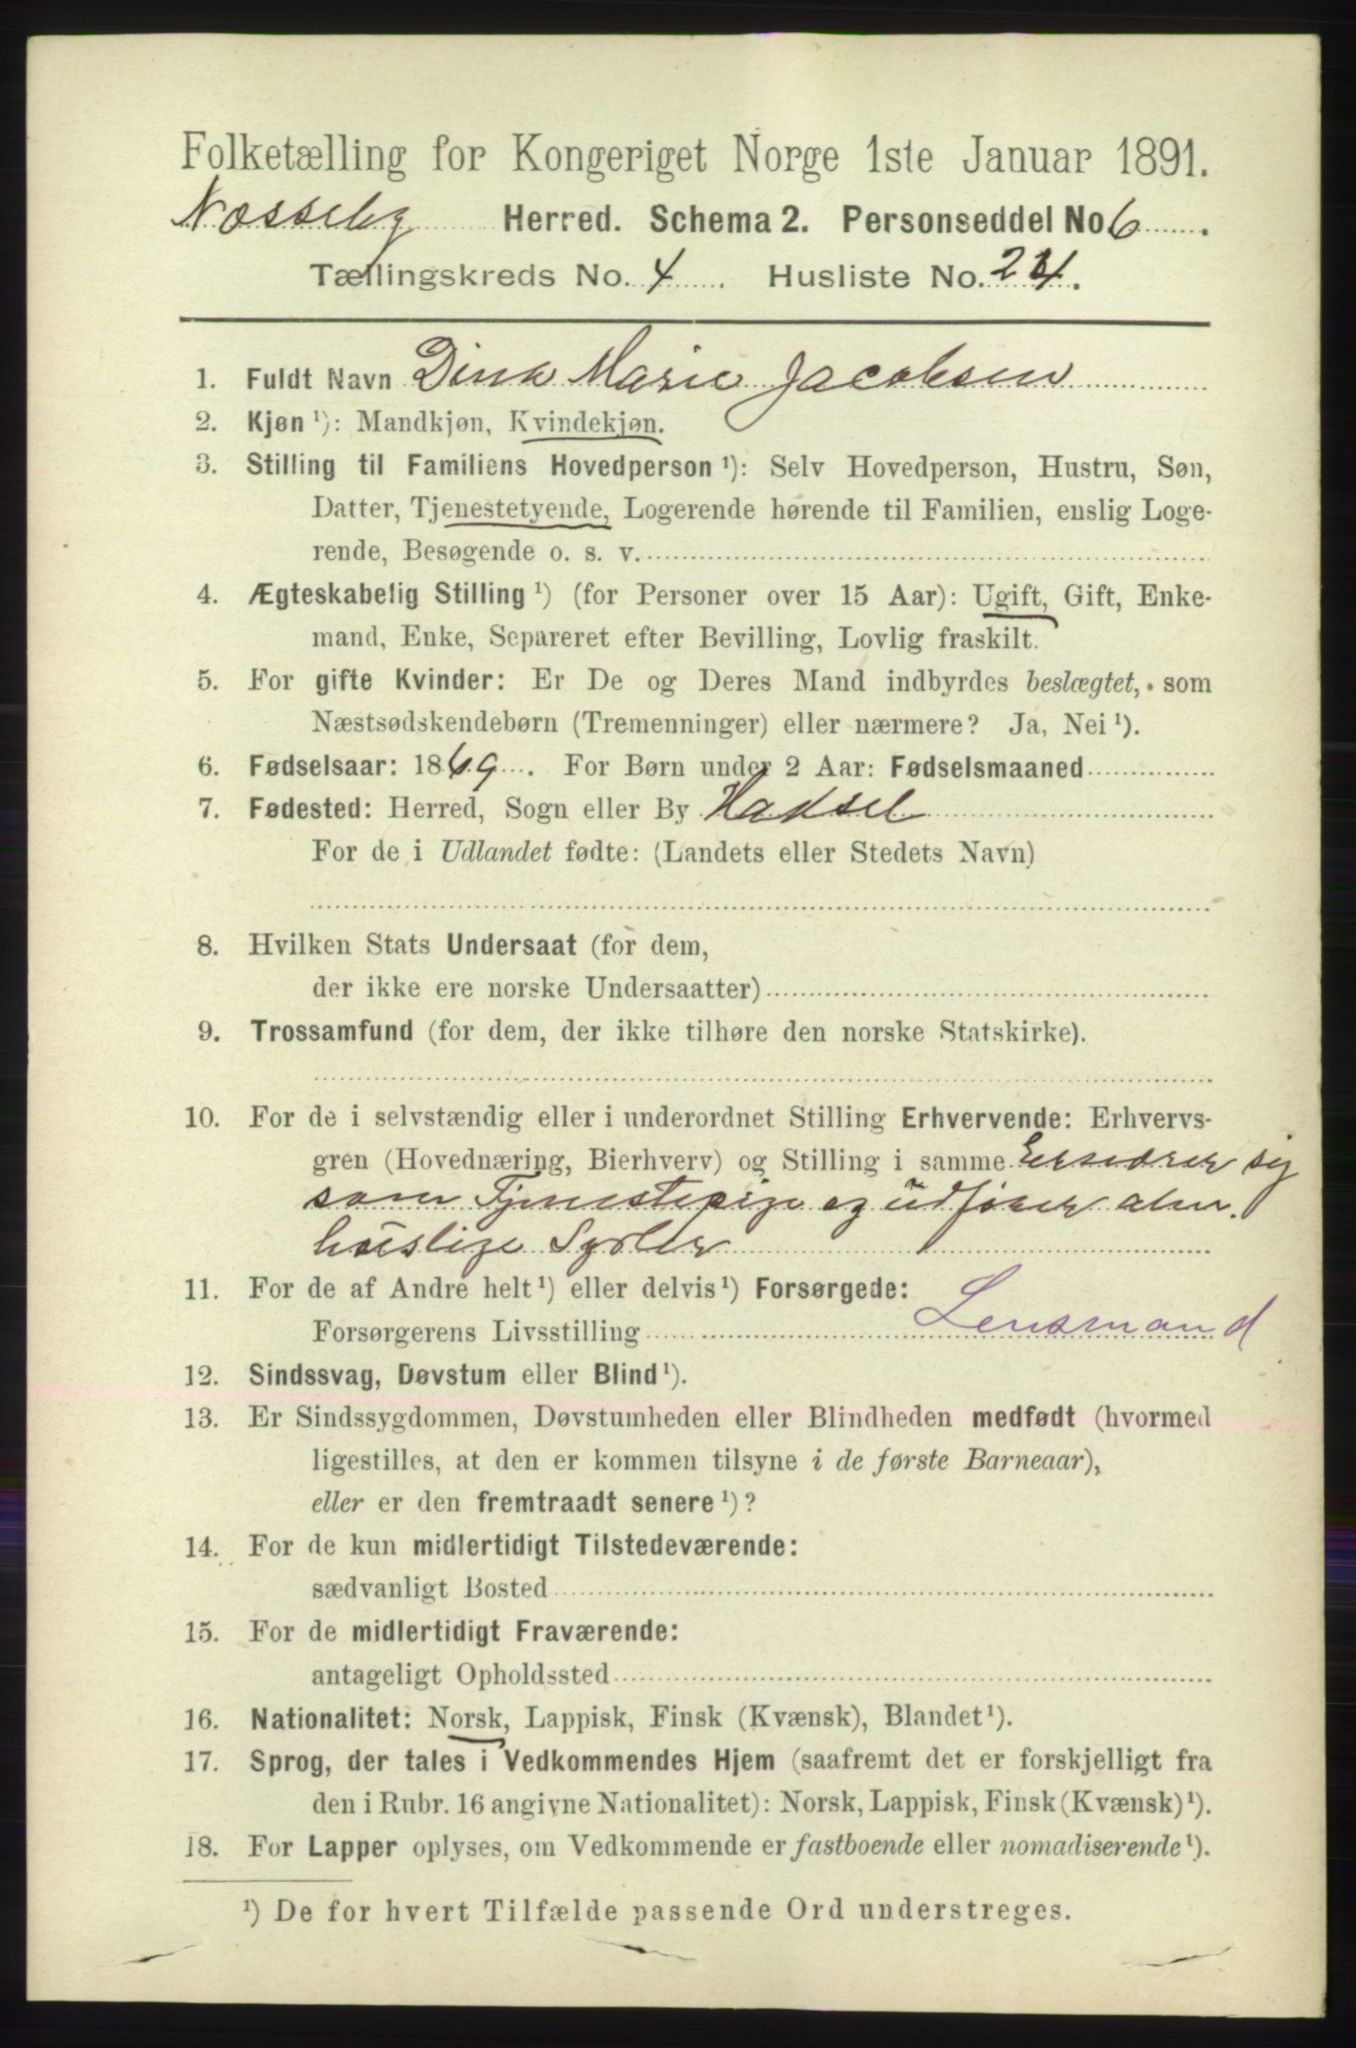 Folketælling for Kongeriget Norge 1ste Januar 1891.
Næsseby Herred. Schema 2. Personseddel No. 6.
Tællingskreds No. 4 Husliste No. 24.
1. Fuldt Navn Dina Marie Jacobsen
2. Kjøn ¹): Mandkjøn, Kvindekjøn.
3. Stilling til Familiens Hovedperson ¹): Selv Hovedperson, Hustru, Søn,
Datter, Tjenestetyende, Logerende hørende til Familien, enslig Loge-
rende, Besøgende o. s. v.
4. Ægteskabelig Stilling ¹) (for Personer over 15 Aar): Ugift, Gift, Enke-
mand, Enke, Separeret efter Bevilling, Lovlig fraskilt.
5. For gifte Kvinder: Er De og Deres Mand indbyrdes beslægtet, som
Næstsødskendebørn (Tremenninger) eller nærmere? Ja, Nei ¹).
6. Fødselsaar: 1869. For Børn under 2 Aar: Fødselsmaaned
7. Fødested: Herred, Sogn eller By Hadsel
For de i Udlandet fødte: (Landets eller Stedets Navn)
8. Hvilken Stats Undersaat (for dem,
der ikke ere norske Undersaatter)
9. Trossamfund (for dem, der ikke tilhøre den norske Statskirke).
10. For de i selvstændig eller i underordnet Stilling Erhvervende: Erhvervs-
gren (Hovednæring, Bierhverv) og Stilling i samme Ernærer sig
som Tjenestepige og udfører alm.
huslige Sysler
11. For de af Andre helt ¹) eller delvis ¹) Forsørgede:
Forsørgerens Livsstilling Lensmand
12. Sindssvag, Døvstum eller Blind ¹).
13. Er Sindssygdommen, Døvstumheden eller Blindheden medfødt (hvormed
ligestilles, at den er kommen tilsyne i de første Barneaar),
eller er den fremtraadt senere ¹)?
14. For de kun midlertidigt Tilstedeværende:
sædvanligt Bosted
15. For de midlertidigt Fraværende:
antageligt Opholdssted
16. Nationalitet: Norsk, Lappisk, Finsk (Kvænsk), Blandet ¹).
17. Sprog, der tales i Vedkommendes Hjem (saafremt det er forskjelligt fra
den i Rubr. 16 angivne Nationalitet): Norsk, Lappisk, Finsk (Kvænsk) ¹).
18. For Lapper oplyses, om Vedkommende er fastboende eller nomadiserende ¹).
¹) De for hvert Tilfælde passende Ord understreges.